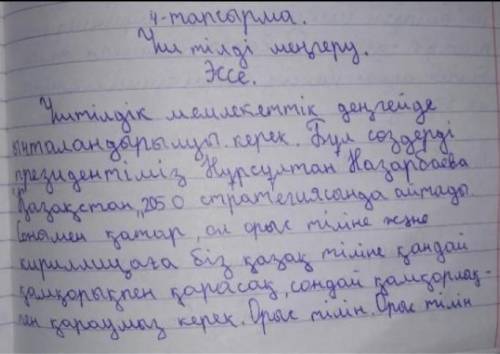 4-тапсырма.
Үш тілді меңгеру.
Эссе.
Үштілдік мемлекеттік деңгейде
ынталандырылуы керек. Бұл сөздерді
президентіміз Нұрсұлтан Назарбаева
"Қазақстан „2050 стратегиясында айтады
Сонымен қатар, ол орыс тіліне және
кириллицаға біз қазақ тіліне қандай
қамқорықпен қарасақ, сондай қамқорлақ-
пен қарауымыз керек. Орыс тілін. Орыс тілін